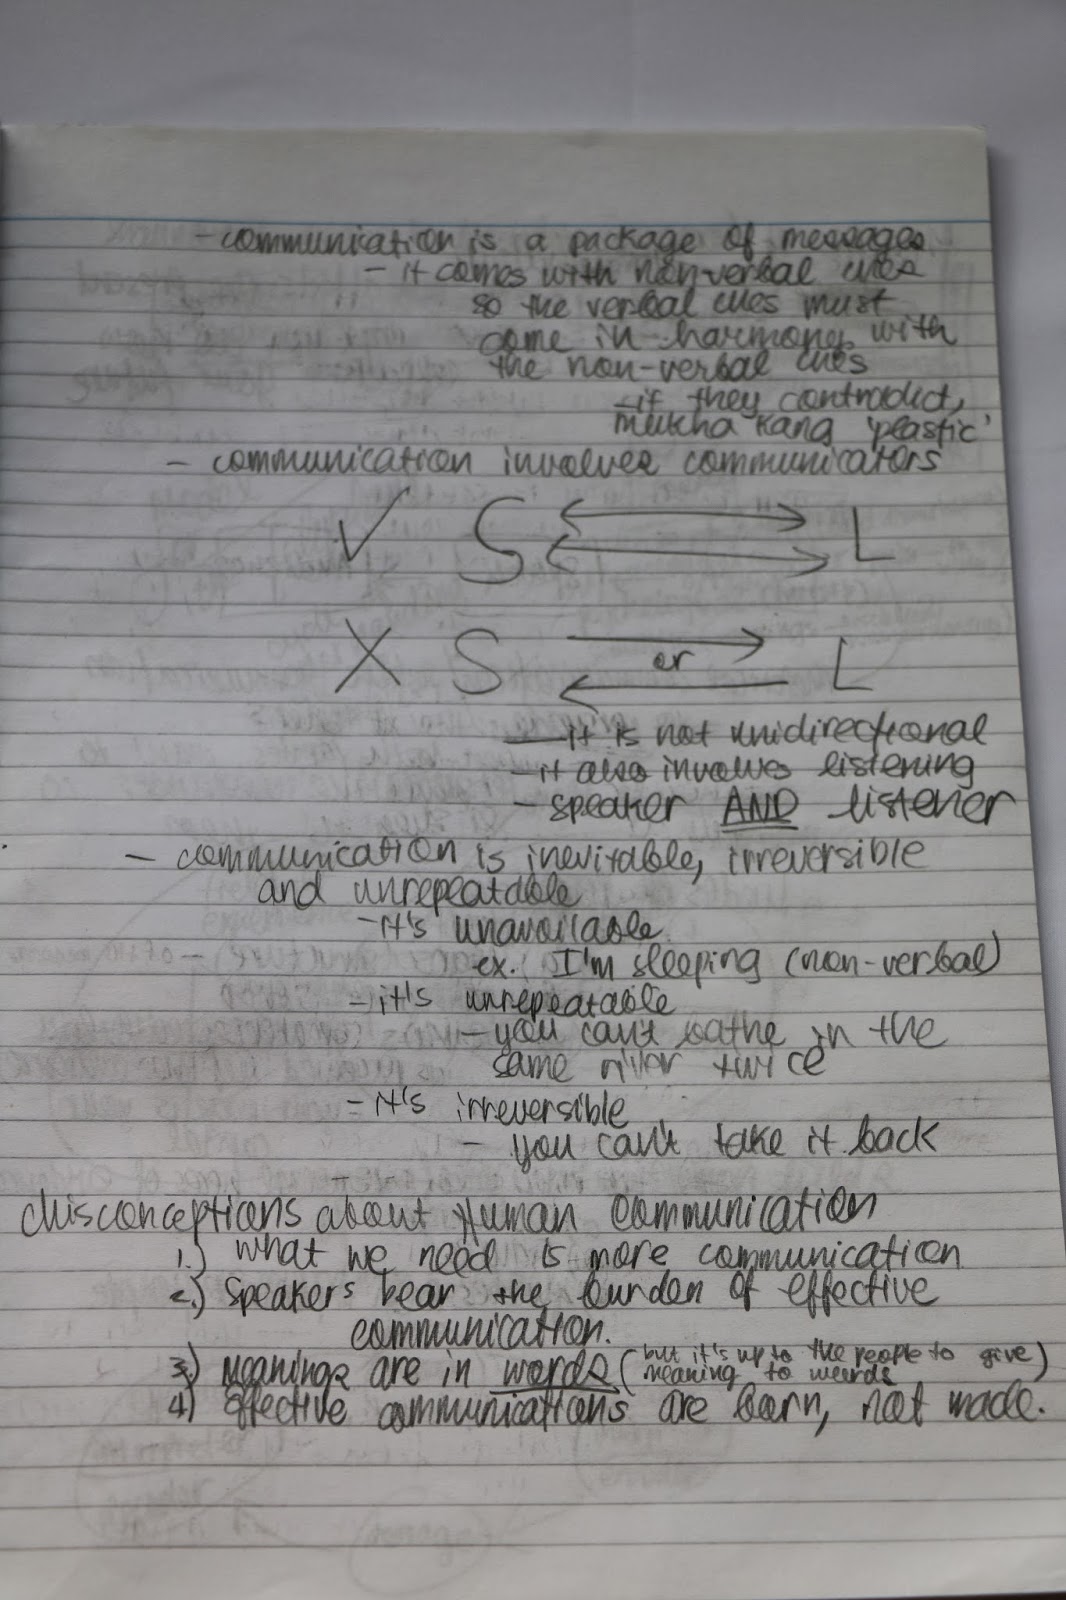 - communication is a package of messages
- it comes with non-verbal cues
so the verbal cues must
come in harmony with
the non-verbal cues
- if they contradict,
mukha kang 'plastic'
- communication involves communicators
✓ S L
X S or L
- it is not unidirectional
- it also involves listening
- speaker AND listener
- communication is inevitable, irreversible
and unrepeatable
- it's unavailable
ex. I'm sleeping (non-verbal)
- it's unrepeatable
- you can't bathe in the
same river twice
- it's irreversible
- you can't take it back
Misconceptions about Human Communication
1.) What we need is more communication
2.) Speakers bear the burden of effective
communication.
3) Meanings are in words (but it's up to the people to give
meaning to words)
4) Effective communications are born, not made.